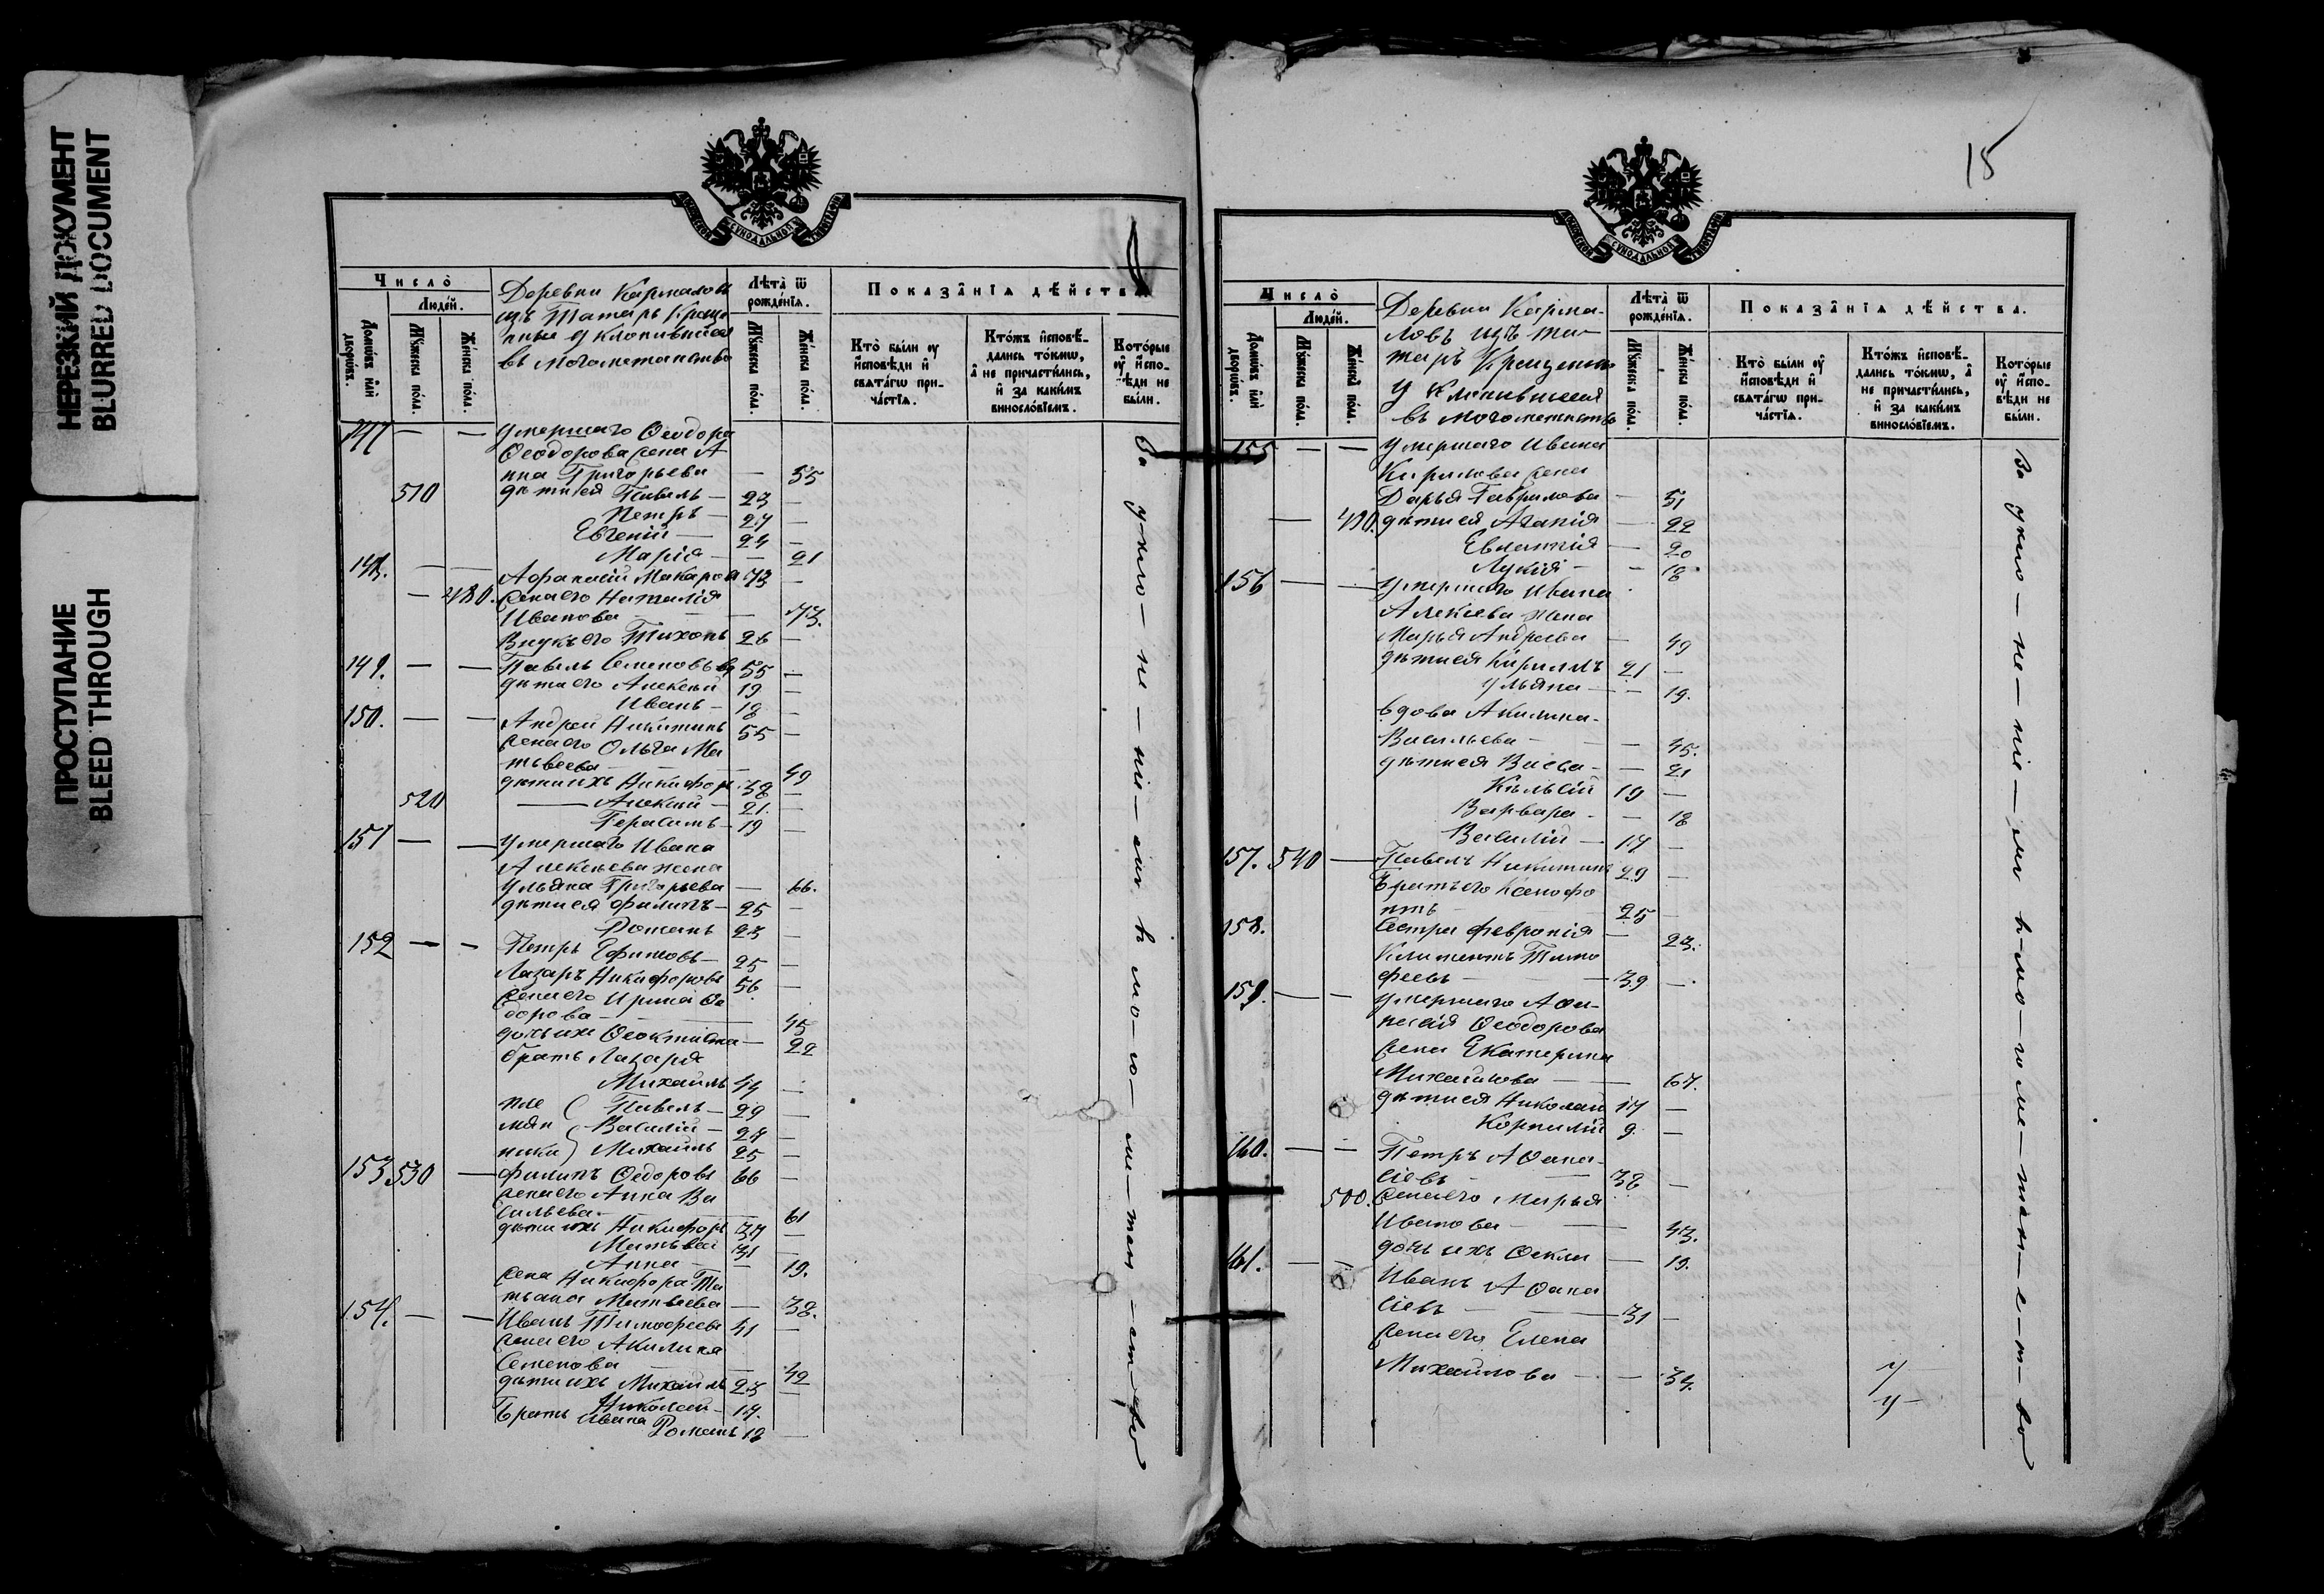 НЕРЕЗКИЙ ДОКУМЕНТ
BLURRED DOCUMENT
ПРОСТУПАНИЕ
BLEED THROUGH
МОСКОВСКОЙ СУНОДАЛЬНОЙ ТИПОГРАФІИ
Число̀
Людей.
Домѡвъ или дворѡвъ.
Мꙋжеска пола.
Женска пола.
Деревни Кармалов
Татаръ Креще
нные уклонившiеся
въ могометанство
Лѣта ѿ рожденїѧ.
Мꙋжеска пола.
Женска пола.
Показанїѧ дѣйства
Кто были оу исповѣди и свѧтагѡ причастїѧ.
Ктожъ исповѣдались токмѡ, а не причастились, и за какимъ винословїемъ.
Которые оу исповѣди не были.
147 — — умершаго Ѳеодора
Ѳеодорова жена А
нна Григорьева — 55
510 дѣти ея Павелъ — 23 —
Петръ — 27 —
Евгенiй — 24 —
Марiя — — 21
148. — — Афанасiй Макаровъ 73 —
— 480. жена его Наталiя
Иванова — — 73.
Внукъ его Тихонъ 26 —
149. — — Павелъ Семеновъ 55 —
дѣти его Алексѣй 19 —
Иванъ — 18 —
150. — — Андрей Никитинъ 55 —
жена его Ольга Ма
твѣева — — 49
дѣти ихъ Никифоръ 38 —
520 — Алексѣй — 21. —
Герасимъ — 19 —
151 — — умершаго Ивана
Алексѣева жена
Ульяна Григорьева — 66.
дѣти ея Филипъ — 25 —
Романъ 23 —
152 — — Петръ Ефимовъ — 25 —
Лазаръ Никифоровъ 56 —
жена его Ирина Ѳе
дорова — — 45
дочь ихъ Ѳеоктиста — 22
братъ Лазаря
Михаилъ 44 —
пле Павелъ — 29 —
мян Василiй — 27 —
ники Михаилъ 25 —
153 530 — Филипъ Ѳедоровъ 66 —
жена его Анна Ва
сильева — — 61
дѣти ихъ Никифоръ 37 —
Матвѣй 31 —
Анна — — 19.
жена Никифора Та
тьяна Матвѣева — 38.
154. — — Иванъ Тимофеевъ 41 —
жена его Акилина
Семенова — — 42
дѣти ихъ Михаилъ 23 —
Николай — 17.
Братъ Ивана
Романъ 18 —
За укло-не-нiе-мъ въ мо-го-ме-тан-ст-во
15
МОСКОВСКОЙ СУНОДАЛЬНОЙ ТИПОГРАФІИ
Число̀
Людей.
Домѡвъ или дворѡвъ.
Мꙋжеска пола.
Женска пола.
Деревни Карма-
ловъ та-
таръ Крещенны
уклонившiеся
въ могометанство
Лѣта ѿ рожденїѧ.
Мꙋжеска пола.
Женска пола.
Показанїѧ дѣйства.
Кто были оу исповѣди и свѧтагѡ причастїѧ.
Ктожъ исповѣдались токмѡ, а не причастились, и за какимъ винословїемъ.
Которые оу исповѣди не были.
155 — — умершаго Ивана
Кирилова жена
Дарья Гаврилова — 51
— 490. дѣти ея Агапiя — 22
Евлампiя — 20
Лукiя — — 18
156 — — умершаго Ивана
Алексѣева жена
Марья Андреева — 49
дѣти ея Кириллъ 21 —
Ульяна — — 19.
вдова Акилина
Васильева — — 45.
дѣти ея Васса — — 21
19 —
Варвара — — 18
Василiй — 17 —
157. 540 — Павелъ Никитинъ 29 —
Братъ его Ксенофо
нтъ — 25 —
сестра Февронiя — 23.
158. Климентъ Тимо
феевъ — 39 —
159. — — умершаго Аѳа-
насiя Ѳеодорова
жена Екатерина
Михайлова — — 67.
дѣти ея Николай 17 —
Корнилiй 9. —
160. — — Петръ Аѳана-
сiевъ — 38 —
500. жена его Марья
Иванова — — 43.
дочь ихъ Ѳекла — 19.
161. — — Иванъ Аѳана
сiевъ — 31 —
жена его Елена
Михайлова — — 34.
За укло-не-нiе-мъ въ мо-го-ме-тан-с-т-во